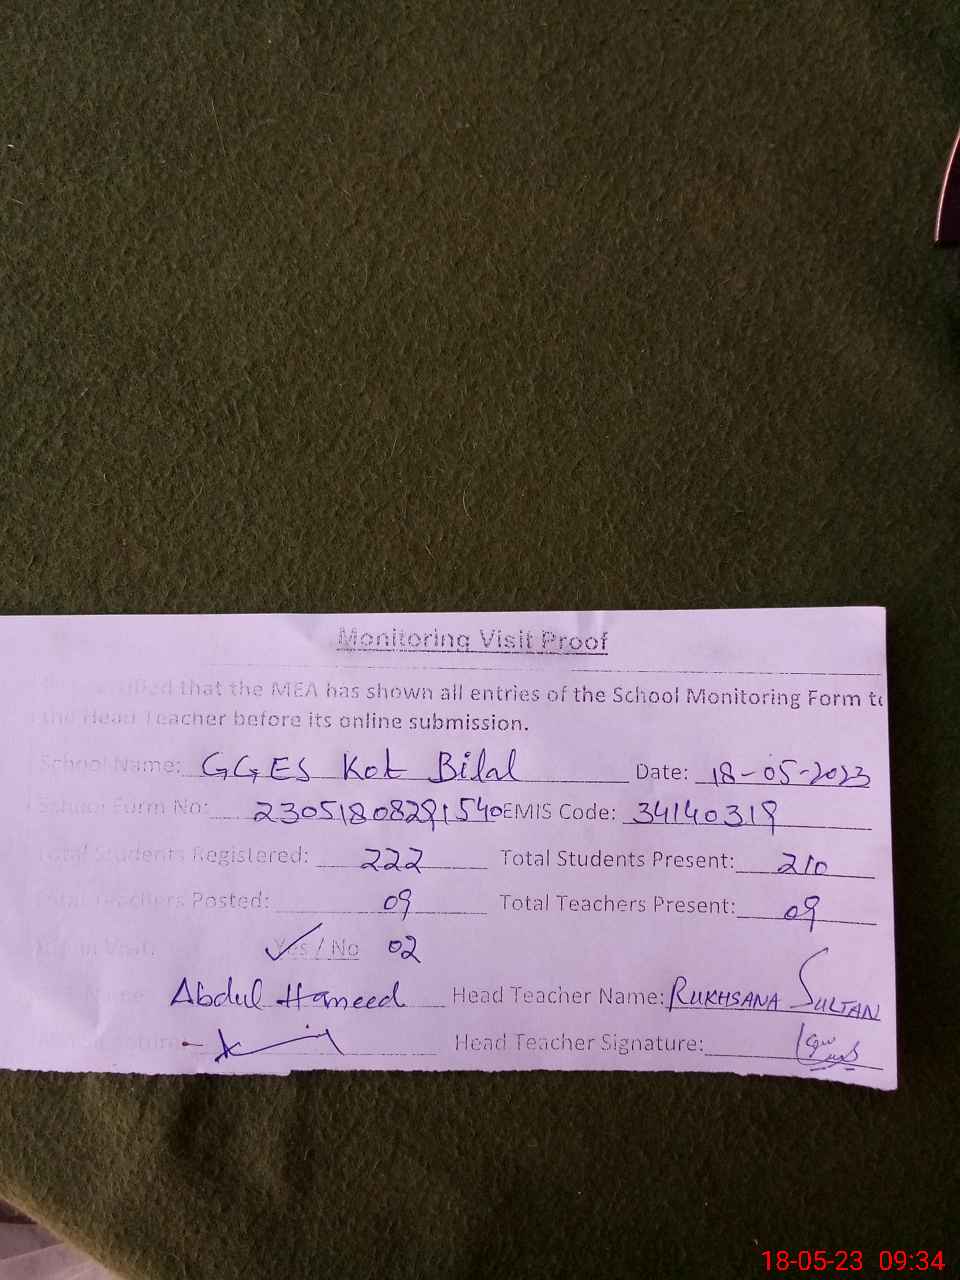 Monitoring Visit Proof
that the MEA has shown all entries of the School Monitoring Form to
the Head Teacher before its online submission.
School Name: GGES Kot Bilal Date: 18-05-2023
School Form No: 23051808291540 EMIS Code: 34140319
Total Students Registered: 222 Total Students Present: 210
Total Teachers Posted: 09 Total Teachers Present: 09
Visit: Yes / No 02
Name: Abdul Hameed Head Teacher Name: RUKHSANA SULTAN
Signature: Head Teacher Signature:
18-05-23 09:34